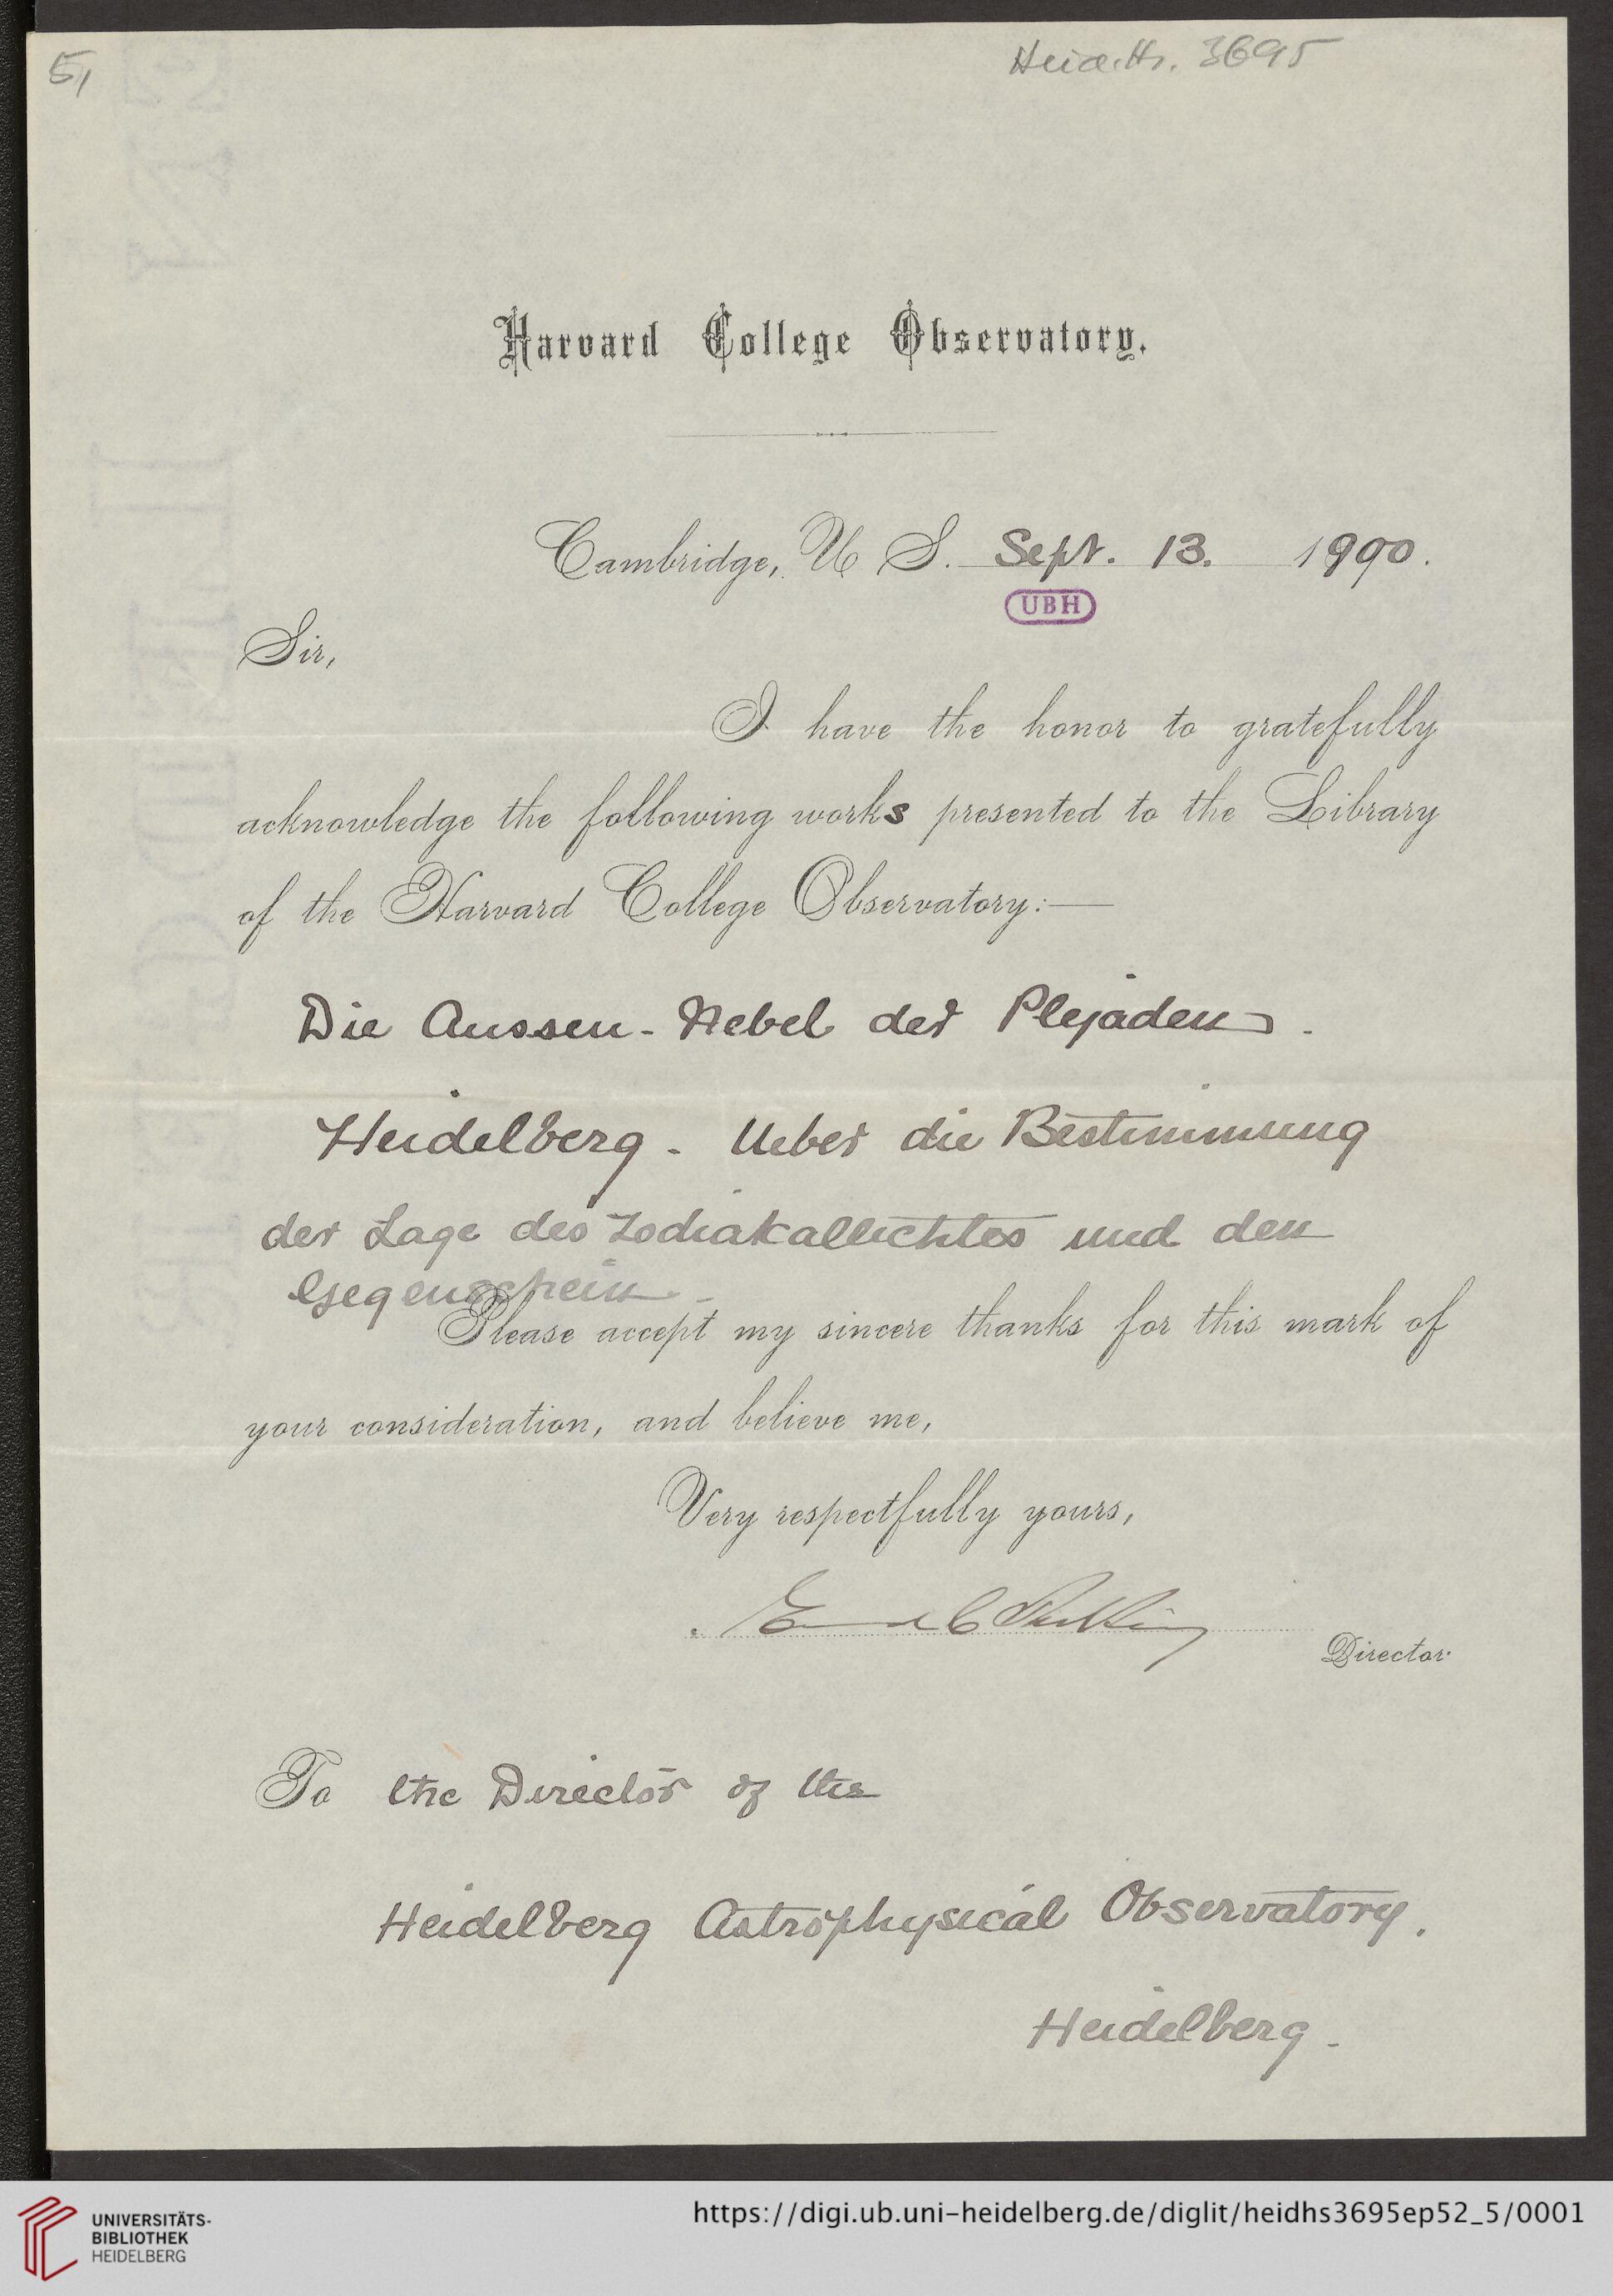 5,
Heid. Hs. 3695
Harvard College Observatory.
Cambridge, U. S. Sept. 13. 1900.
UBH
Sir,
I have the honor to gratefully
acknowledge the following works presented to the Library
of the Harvard College Observatory:—
Die Aussen-Nebel der Plejaden.
Heidelberg. Ueber die Bestimmung
der Lage des Zodiakallichtes und den
Gegenschein.
Please accept my sincere thanks for this mark of
your consideration, and believe me,
Very respectfully yours,
Edward C. Pickering
Director.
To the Director of the
Heidelberg Astrophysical Observatory.
Heidelberg.
UNIVERSITÄTS-
BIBLIOTHEK
HEIDELBERG
https://digi.ub.uni-heidelberg.de/diglit/heidhs3695ep52_5/0001